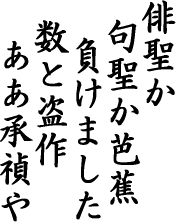 俳聖か
句聖か芭蕉
負けました
数と盗作
ああ承禎や